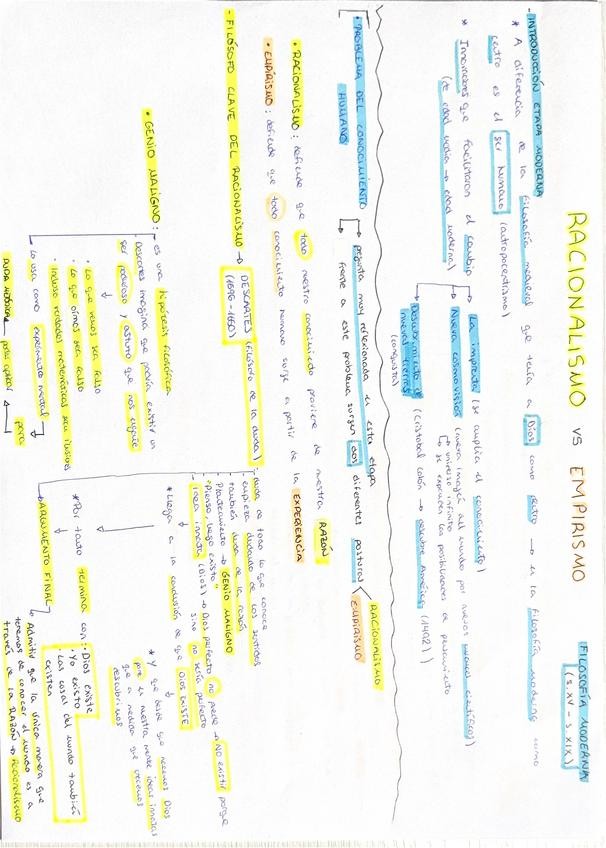 FILOSOFÍA MODERNA
(S.XV - S.XIX)
RACIONALISMO VS EMPIRISMO
- INTRODUCCIÓN ETAPA MODERNA
* A diferencia de la filosofía medieval que tenía a Dios como centro → en la filosofía moderna como
centro es el ser humano (antropocentrismo)
* Innovaciones que facilitaron el cambio
(de edad media → edad moderna)
La imprenta (se amplia el conocimiento)
Nueva cosmovisión (nueva imagen del mundo por nuevos avances científicos)
↳ universo infinito
↳ se expanden las posibilidades de pensamiento
Descubrimiento de nuevas tierras (cristobal colón → descubre América (1492))
(conquista)
• PROBLEMA DEL CONOCIMIENTO
HUMANO
pregunta muy reflexionada en esta etapa
frente a este problema surgen dos diferentes posturas
RACIONALISMO
EMPIRISMO
• RACIONALISMO: defiende que todo nuestro conocimiento proviene de nuestra RAZÓN
• EMPIRISMO: defiende que todo conocimiento humano surge a partir de la EXPERIENCIA
- FILÓSOFO CLAVE DEL RACIONALISMO → DESCARTES (filósofo de la duda)
(1596 - 1650)
- duda de todo lo que conoce
- empieza dudando de los sentidos
- también duda de la razón
- Planteamiento → GENIO MALIGNO
- "Pienso, luego existo"
- idea innata (Dios) → Dios perfecto no puede → NO EXISTIR porque
sino no sería perfecto
* Llega a la conclusión de que DIOS EXISTE
* y que desde que nacemos Dios
pone en nuestra mente ideas innatas
que a medida que crecemos
descubrimos
* Por tanto termina con:
· Dios existe
· Yo existo
· Las cosas del mundo también
existen
ARGUMENTO FINAL
↳ Admitir que la única manera que
tenemos de conocer el mundo es a
través de la RAZÓN → Racionalismo
• GENIO MALIGNO: es una hipótesis filosófica
· Descartes imagina que podría existir un
ser poderoso y astuto que nos engañe
• Lo que vemos sea falso
• Lo que oímos sea falso
• Incluso verdades matemáticas sean ilusiones
Lo usa como experimento mental
para
DUDA METÓDICA